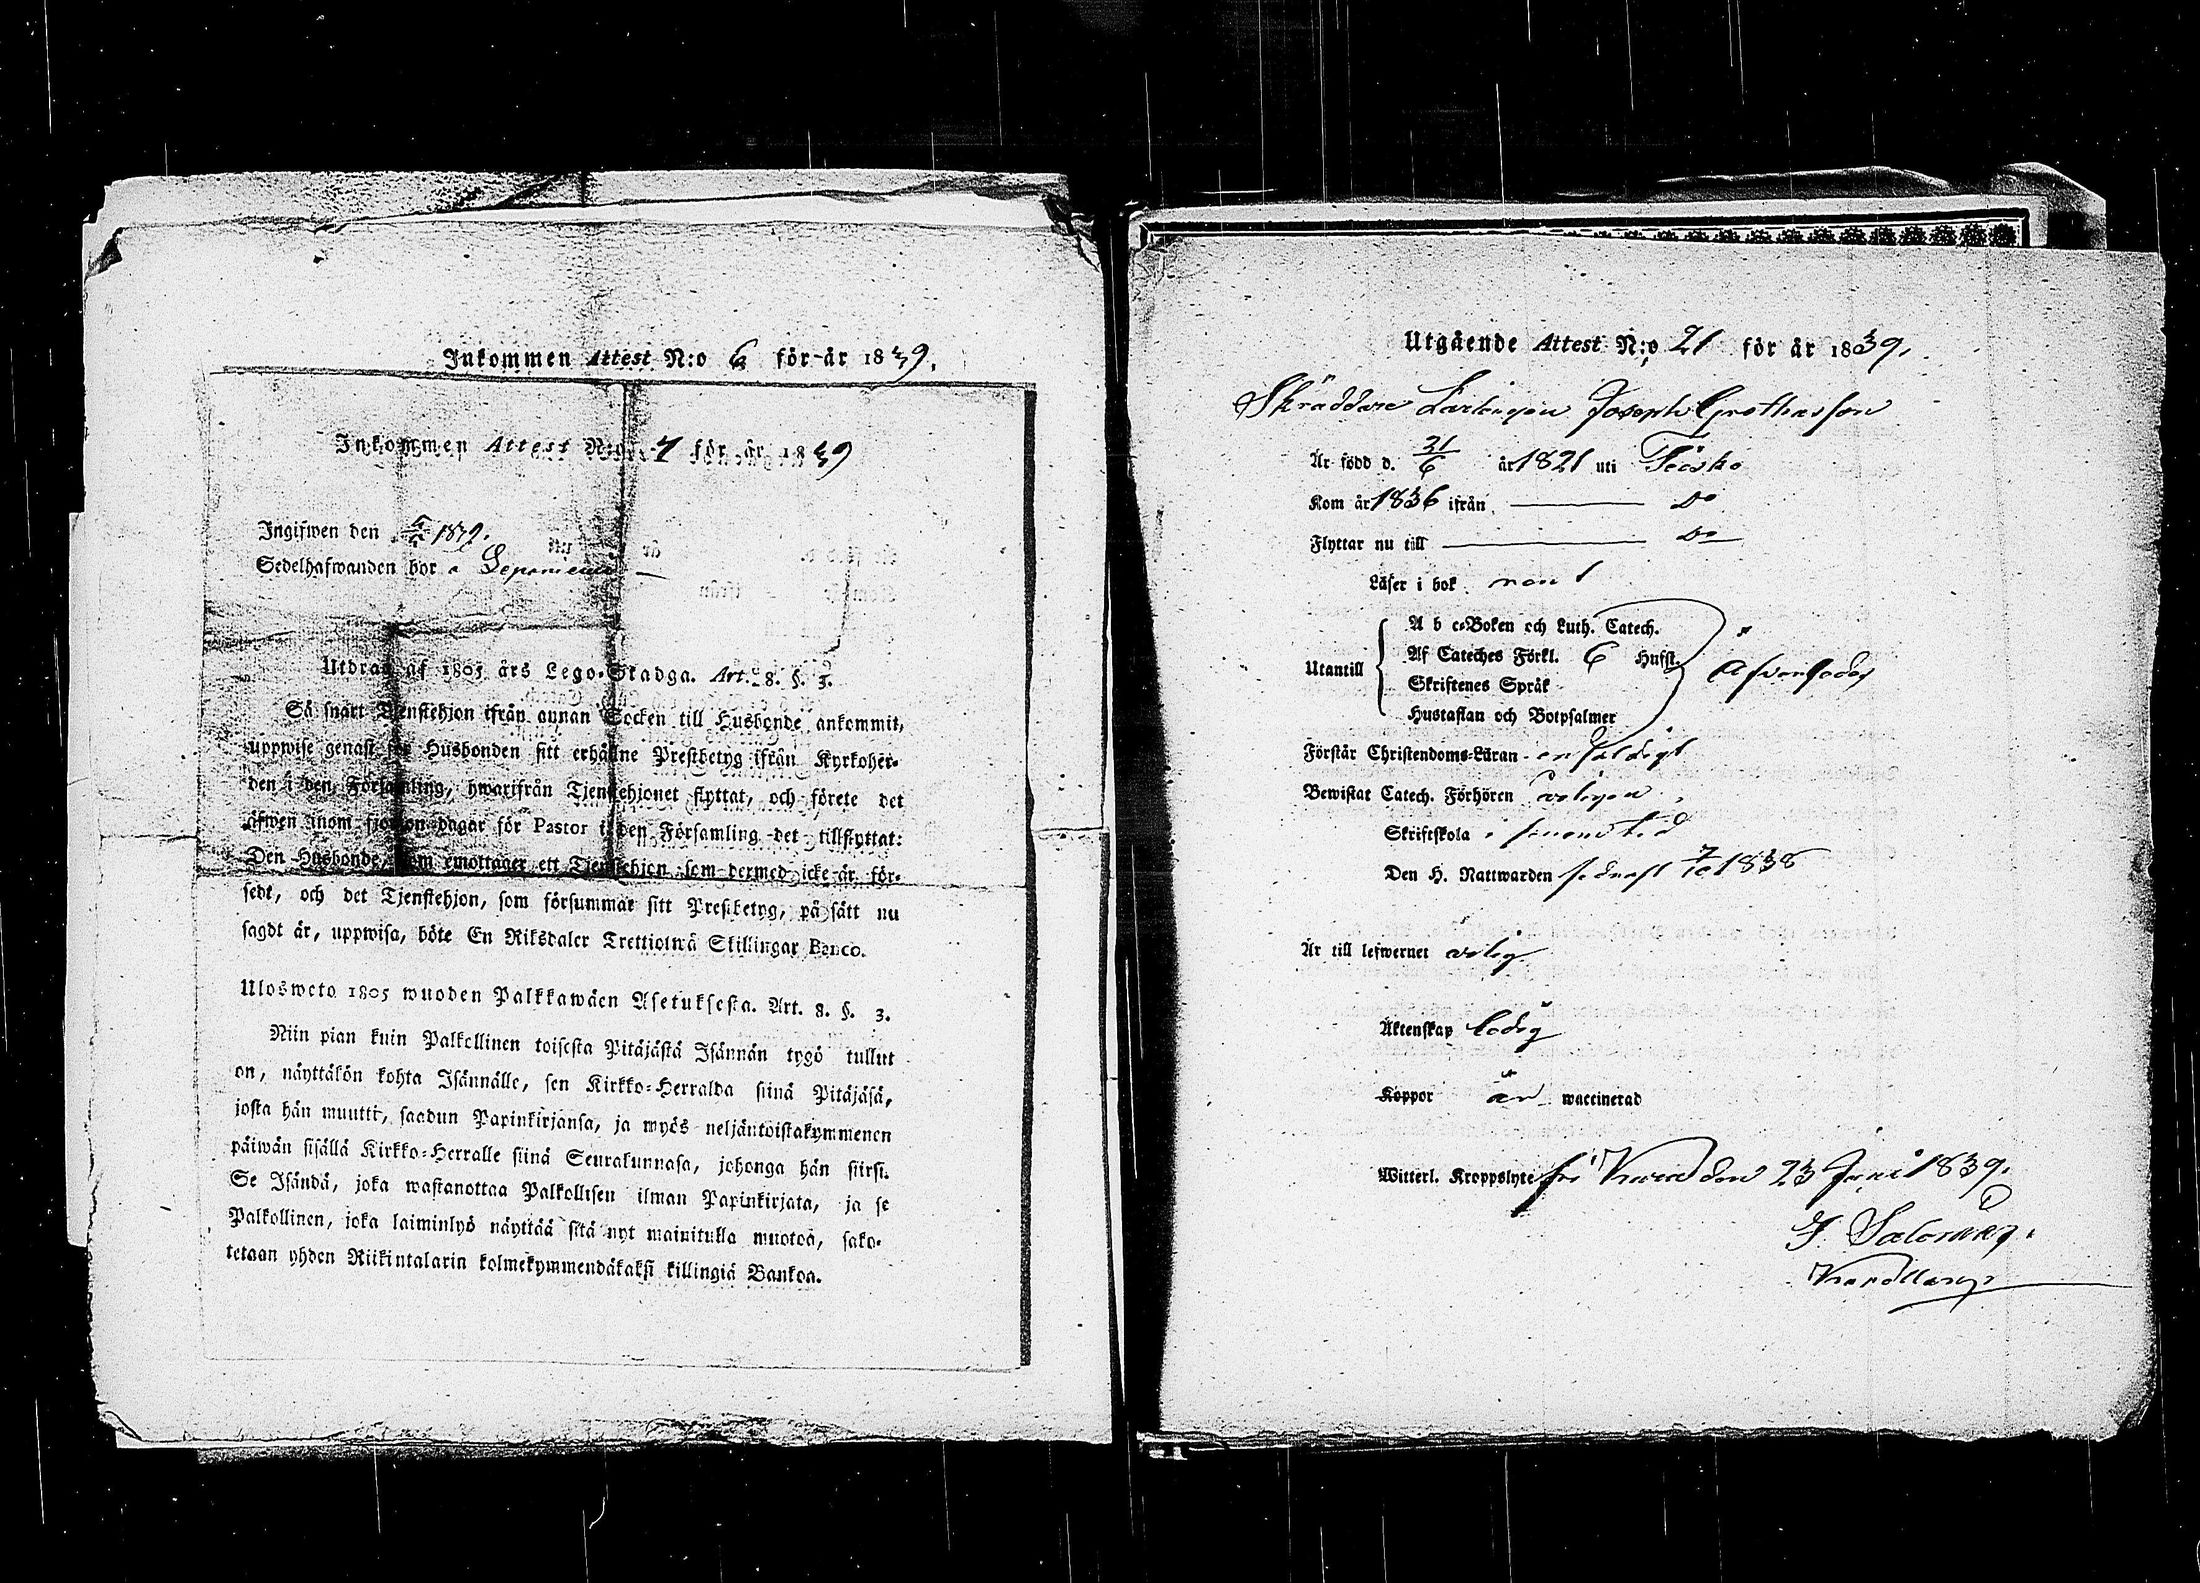 Inkommen Attest N:o 6 för år 1839.
Inkommen Attest N:o 7 för år 1839
Ingifwen den 1839.
Sedelhafwanden bor
Utdrag af 1805 års Lego-Stadga. Art. 8. §. 3.
Så snart Tjenstehjon ifrån annan Socken till Husbonde ankommit,
uppwise genast för Husbonden sitt erhållne Prestbetyg ifrån Kyrkoher-
den i den Församling, hwarifrån Tjenstehjonet flyttat, och förete det
äfwen inom fjorton dagar för Pastor i den Församling det tillflyttat:
Den Husbonde, som emottager ett Tjenstehjon som dermed icke är för-
sedt, och det Tjenstehjon, som försummar sitt Prestbetyg, på sätt nu
sagdt är, uppwisa, böte En Riksdaler Trettiotwå Skillingar Banco.
Ulosweto 1805 wuoden Palkkawäen Asetuksesta. Art. 8. §. 3.
Niin pian kuin Palkollinen toisesta Pitäjästä Isännän tygö tullut
on, näyttäkön kohta Isännälle, sen Kirkko-Herralda siinä Pitäjäsä,
josta hän muutti, saadun Papinkirjansa, ja myös neljäntoistakymmenen
päiwän sisällä Kirkko-Herralle siinä Seurakunnasa, johonga hän siirsi.
Se Isändä, joka wastanottaa Palkollisen ilman Papinkirjata, ja se
Palkollinen, joka laiminlyö näyttää sitä nyt mainitulla muotoa, sako-
tetaan yhden Riikintalarin kolmekymmendäkaksi killingiä Bankoa.
Utgående Attest N:o 21 för år 1839.
Skräddare Lärlingen Joseph
Är född d. 21/6 år 1821 uti
Kom år 1836 ifrån Do
Flyttar nu till Do
Läser i bok rent
Utantill
A b c-Boken och Luth. Catech.
Af Cateches Förkl. 6 Hufst.
Skriftenes Språk
Hustaflan och Botpsalmer
Förstår Christendoms-Läran enfaldigt
Bewistat Catech. Förhören
Skriftskola i
Den H. Nattwarden sednast 7/10 1838
Är till lefwernet
Äktenskap ledig
Koppor är waccinerad
Witterl. Kroppslyte fri den 23 Juni 1839.